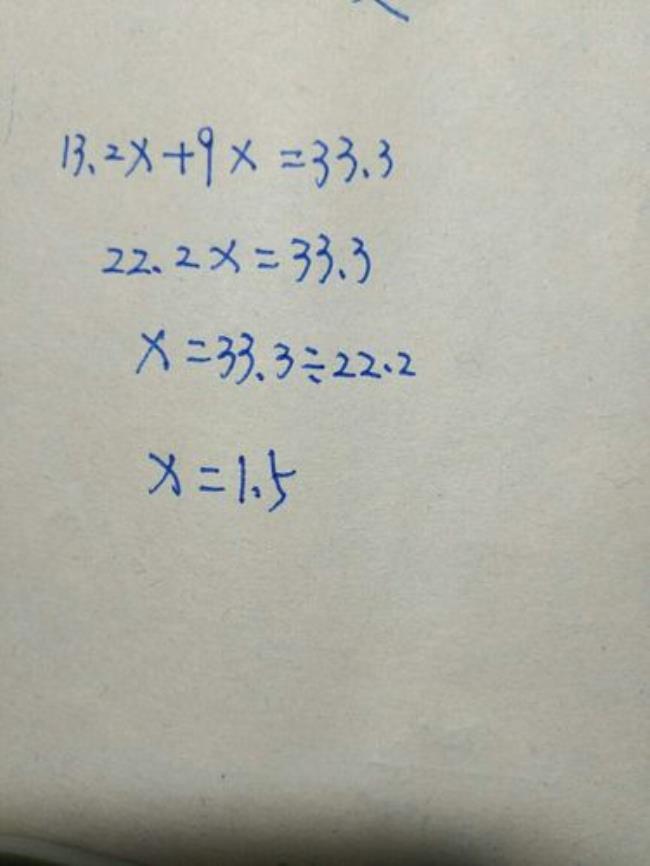 13.2x+9x=33.3
22.2x=33.3
x=33.3÷22.2
x=1.5